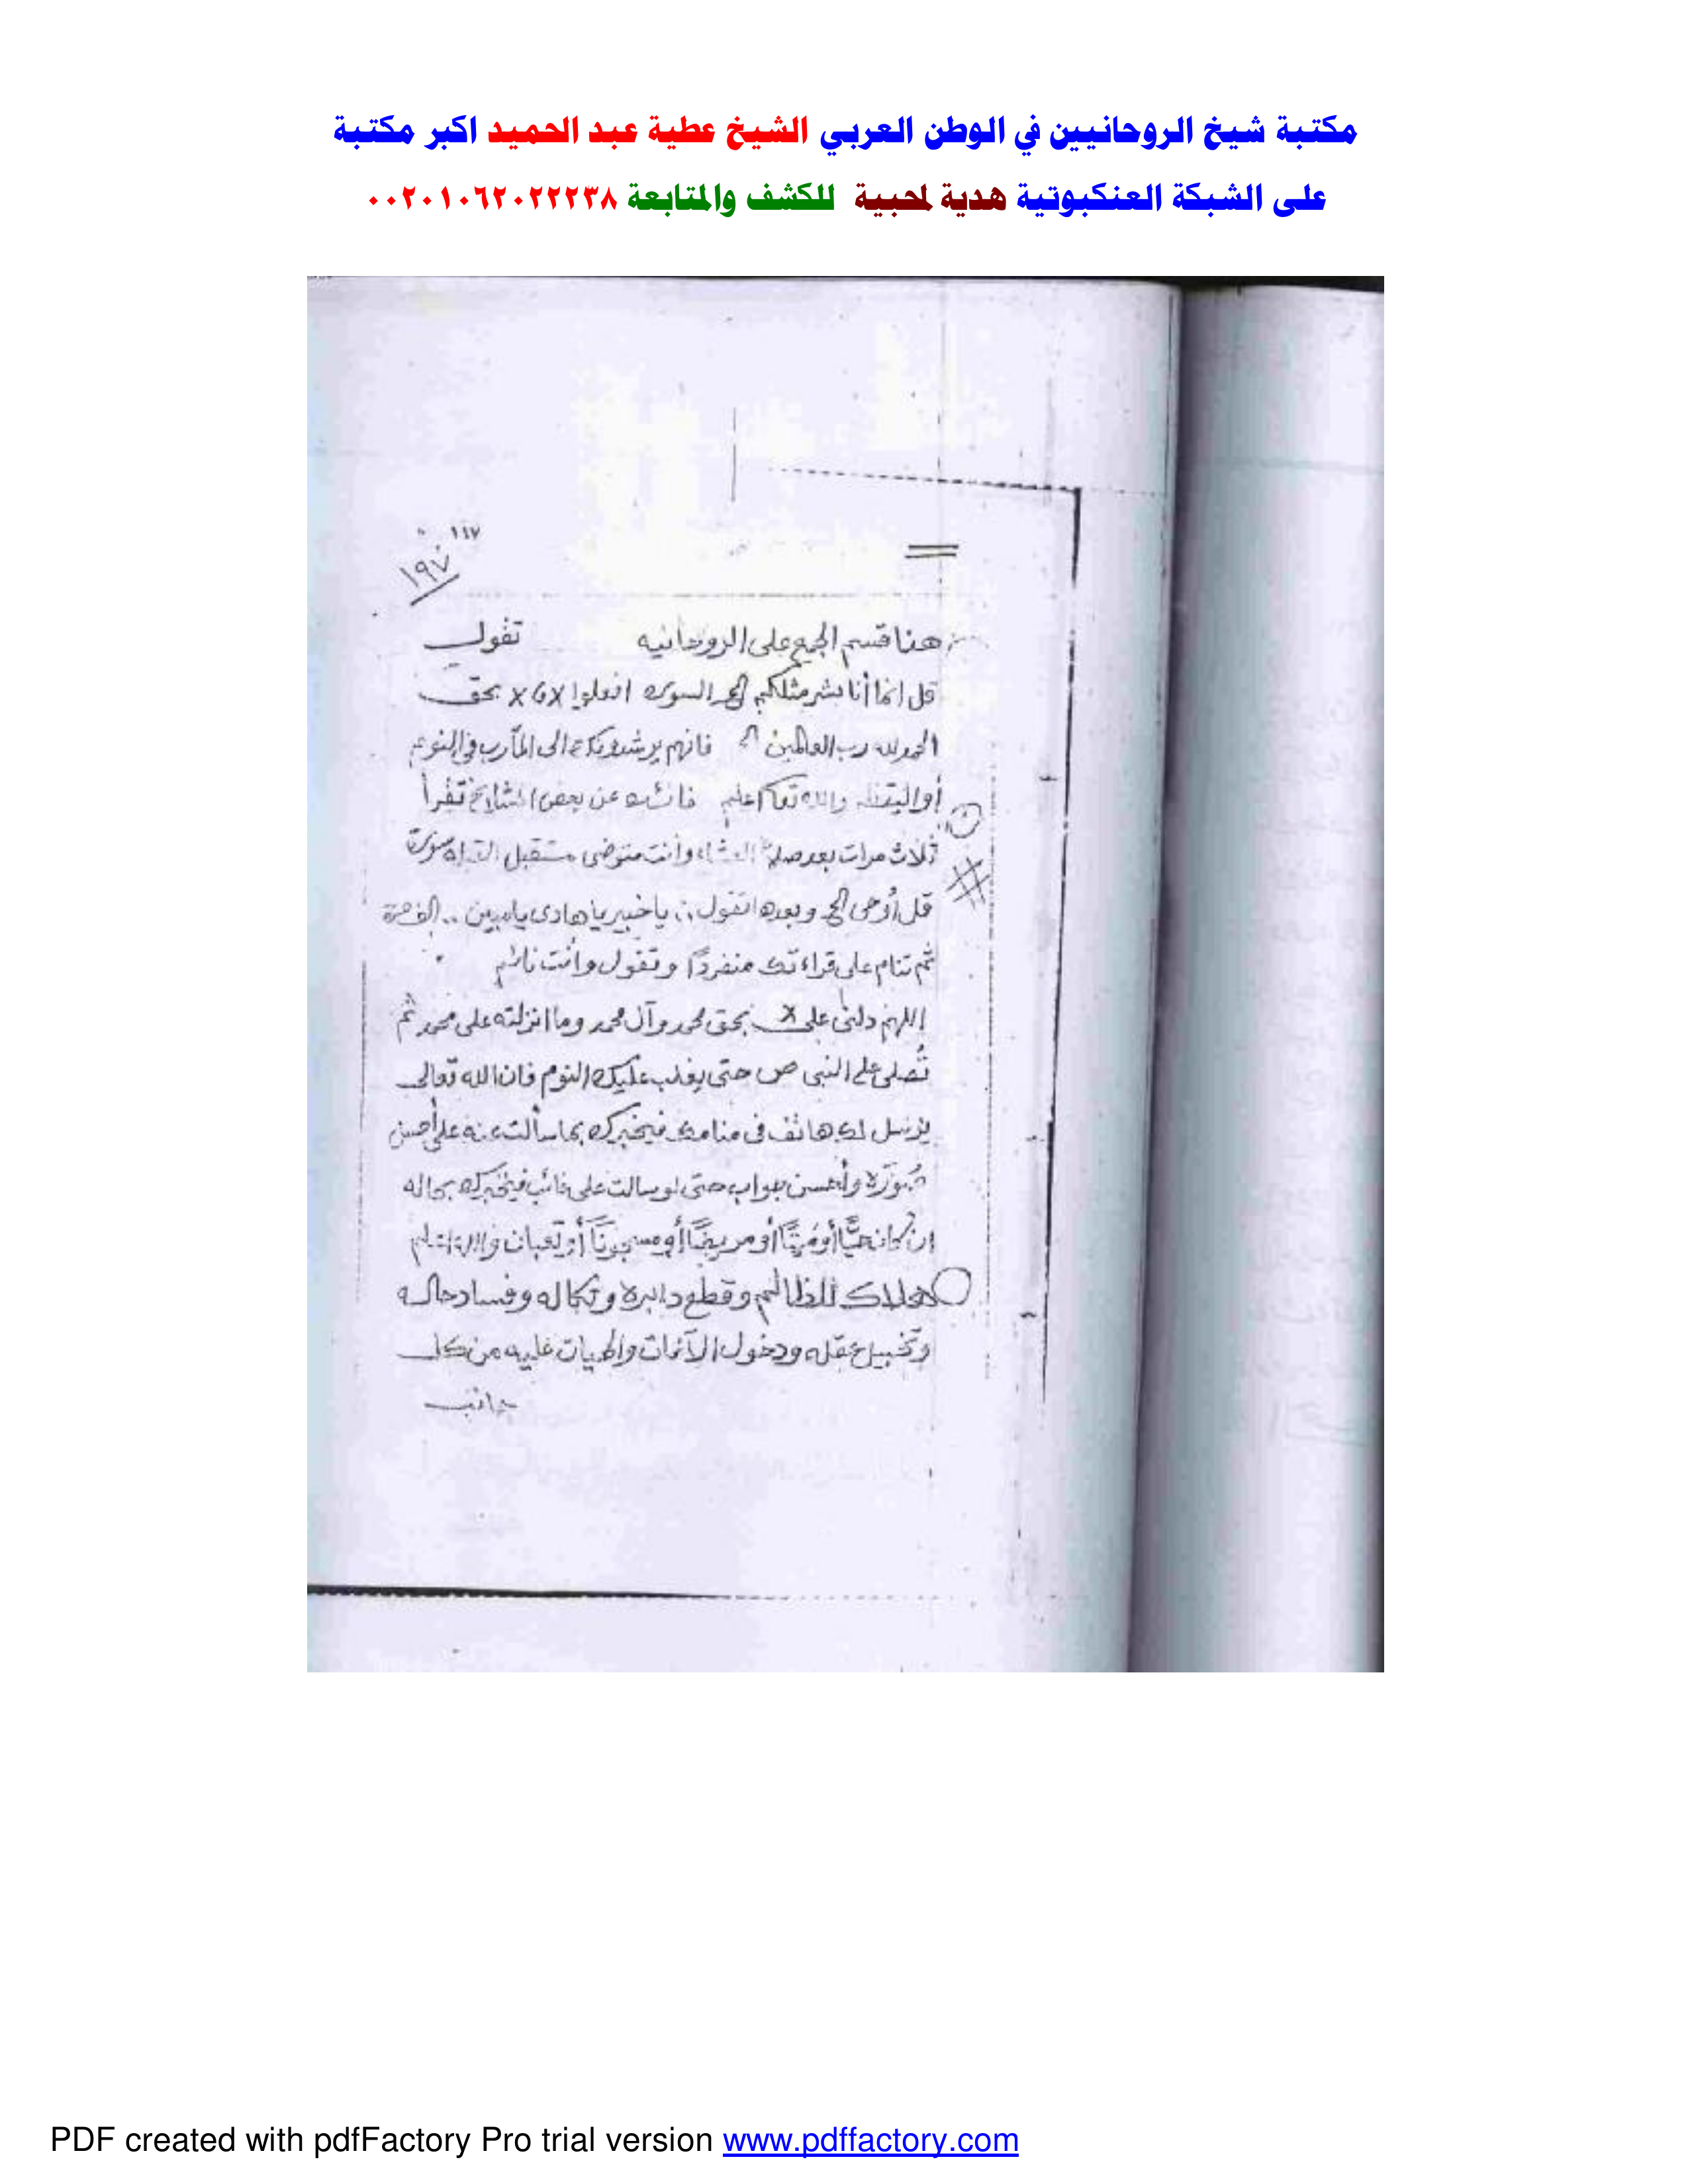 مكتبة شيخ الروحانيين في الوطن العربي الشيخ عطية عبد الحميد اكبر مكتبة
على الشبكة العنكبوتية هدية لمحبية للكشف والمتابعة ٠٠٢٠١٠٦٢٠٢٢٢٣٨
١٤٧
١٩٧
هنا قسم الجمع على الروحانيه تقول
قل إنما أنا بشر مثلكم الخ السورة افعلوا بحق
الحمد لله رب العالمين فانهم يرشدونك الى المآرب في النوم
أو اليقظه والله تعالى اعلم عن بعض المشايخ تقرأ
ثلاث مرات بعد صلاة العشاء وأنت متوضى مستقبل القبله سورة
قل أوحى الخ وبعدها تقول :. يا خبير يا هادى يا مبين ..
ثم تنام على قراءتك منفردًا وتقول وأنت نائم
اللهم دلنى على x بحق محمد وآل محمد وما انزلته على محمد ثم
تُصلى على النبى ص حتى يغلب عليك النوم فان الله تعالى
يرسل لك هاتف فى منامك فيخبرك بما سألت عنه على أحسن
صورة وأحسن جواب حتى لو سالت على غائب فيخبرك بحاله
ان كان حيًّا أو ميتًا أو مريضًا أو مسجونًا أو تعبان والله اعلم
هلاك للظالم وقطع دابره ونكاله وفساد حاله
وتخبيل عقله ودخول الآفات والحيات عليه من كل
جانب
PDF created with pdfFactory Pro trial version www.pdffactory.com